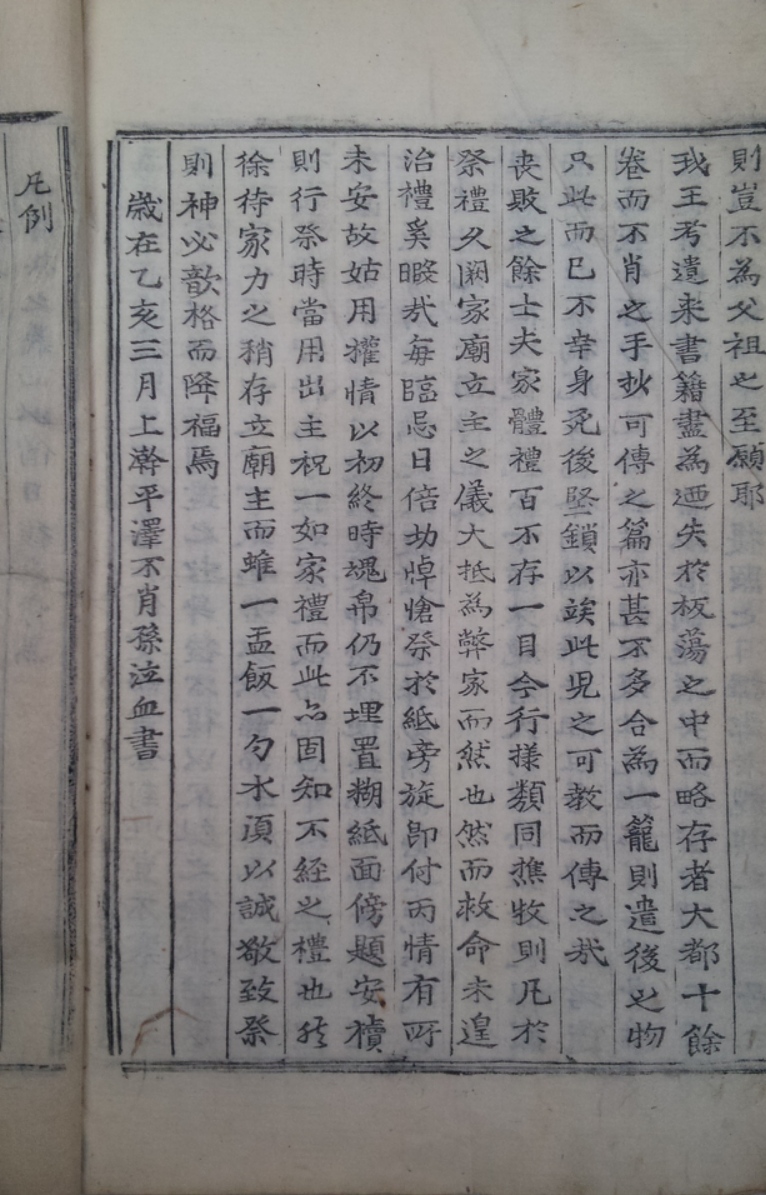 則豈不為父祖之至願耶
我王考遺来書籍盡為逸失於板蕩之中而略存者大都十餘
卷而不肖之手抄可傳之篇亦甚不多合為一籠則遺後之物
只此而已不幸身死後堅鎖以竢此児之可教而傳之㢤
喪敗之餘士夫家體禮百不存一目今行樣類同樵牧則凡於
祭禮久闕家廟立主之儀大抵為弊家而然也然而救命未遑
治禮奚暇㢤每臨忌日倍切悼愴祭於紙旁旋即付丙情有所
未安故姑用權情以初終時魂帛仍不埋置糊紙面傍題安櫝
則行祭時當用出主祝一如家禮而此亦固知不經之禮也然
徐待家力之稍存立廟主而雖一盂飯一勺水須以誠敬致祭
則神必歆格而降福焉
歲在乙亥三月上澣平澤不肖孫泣血書
凡例